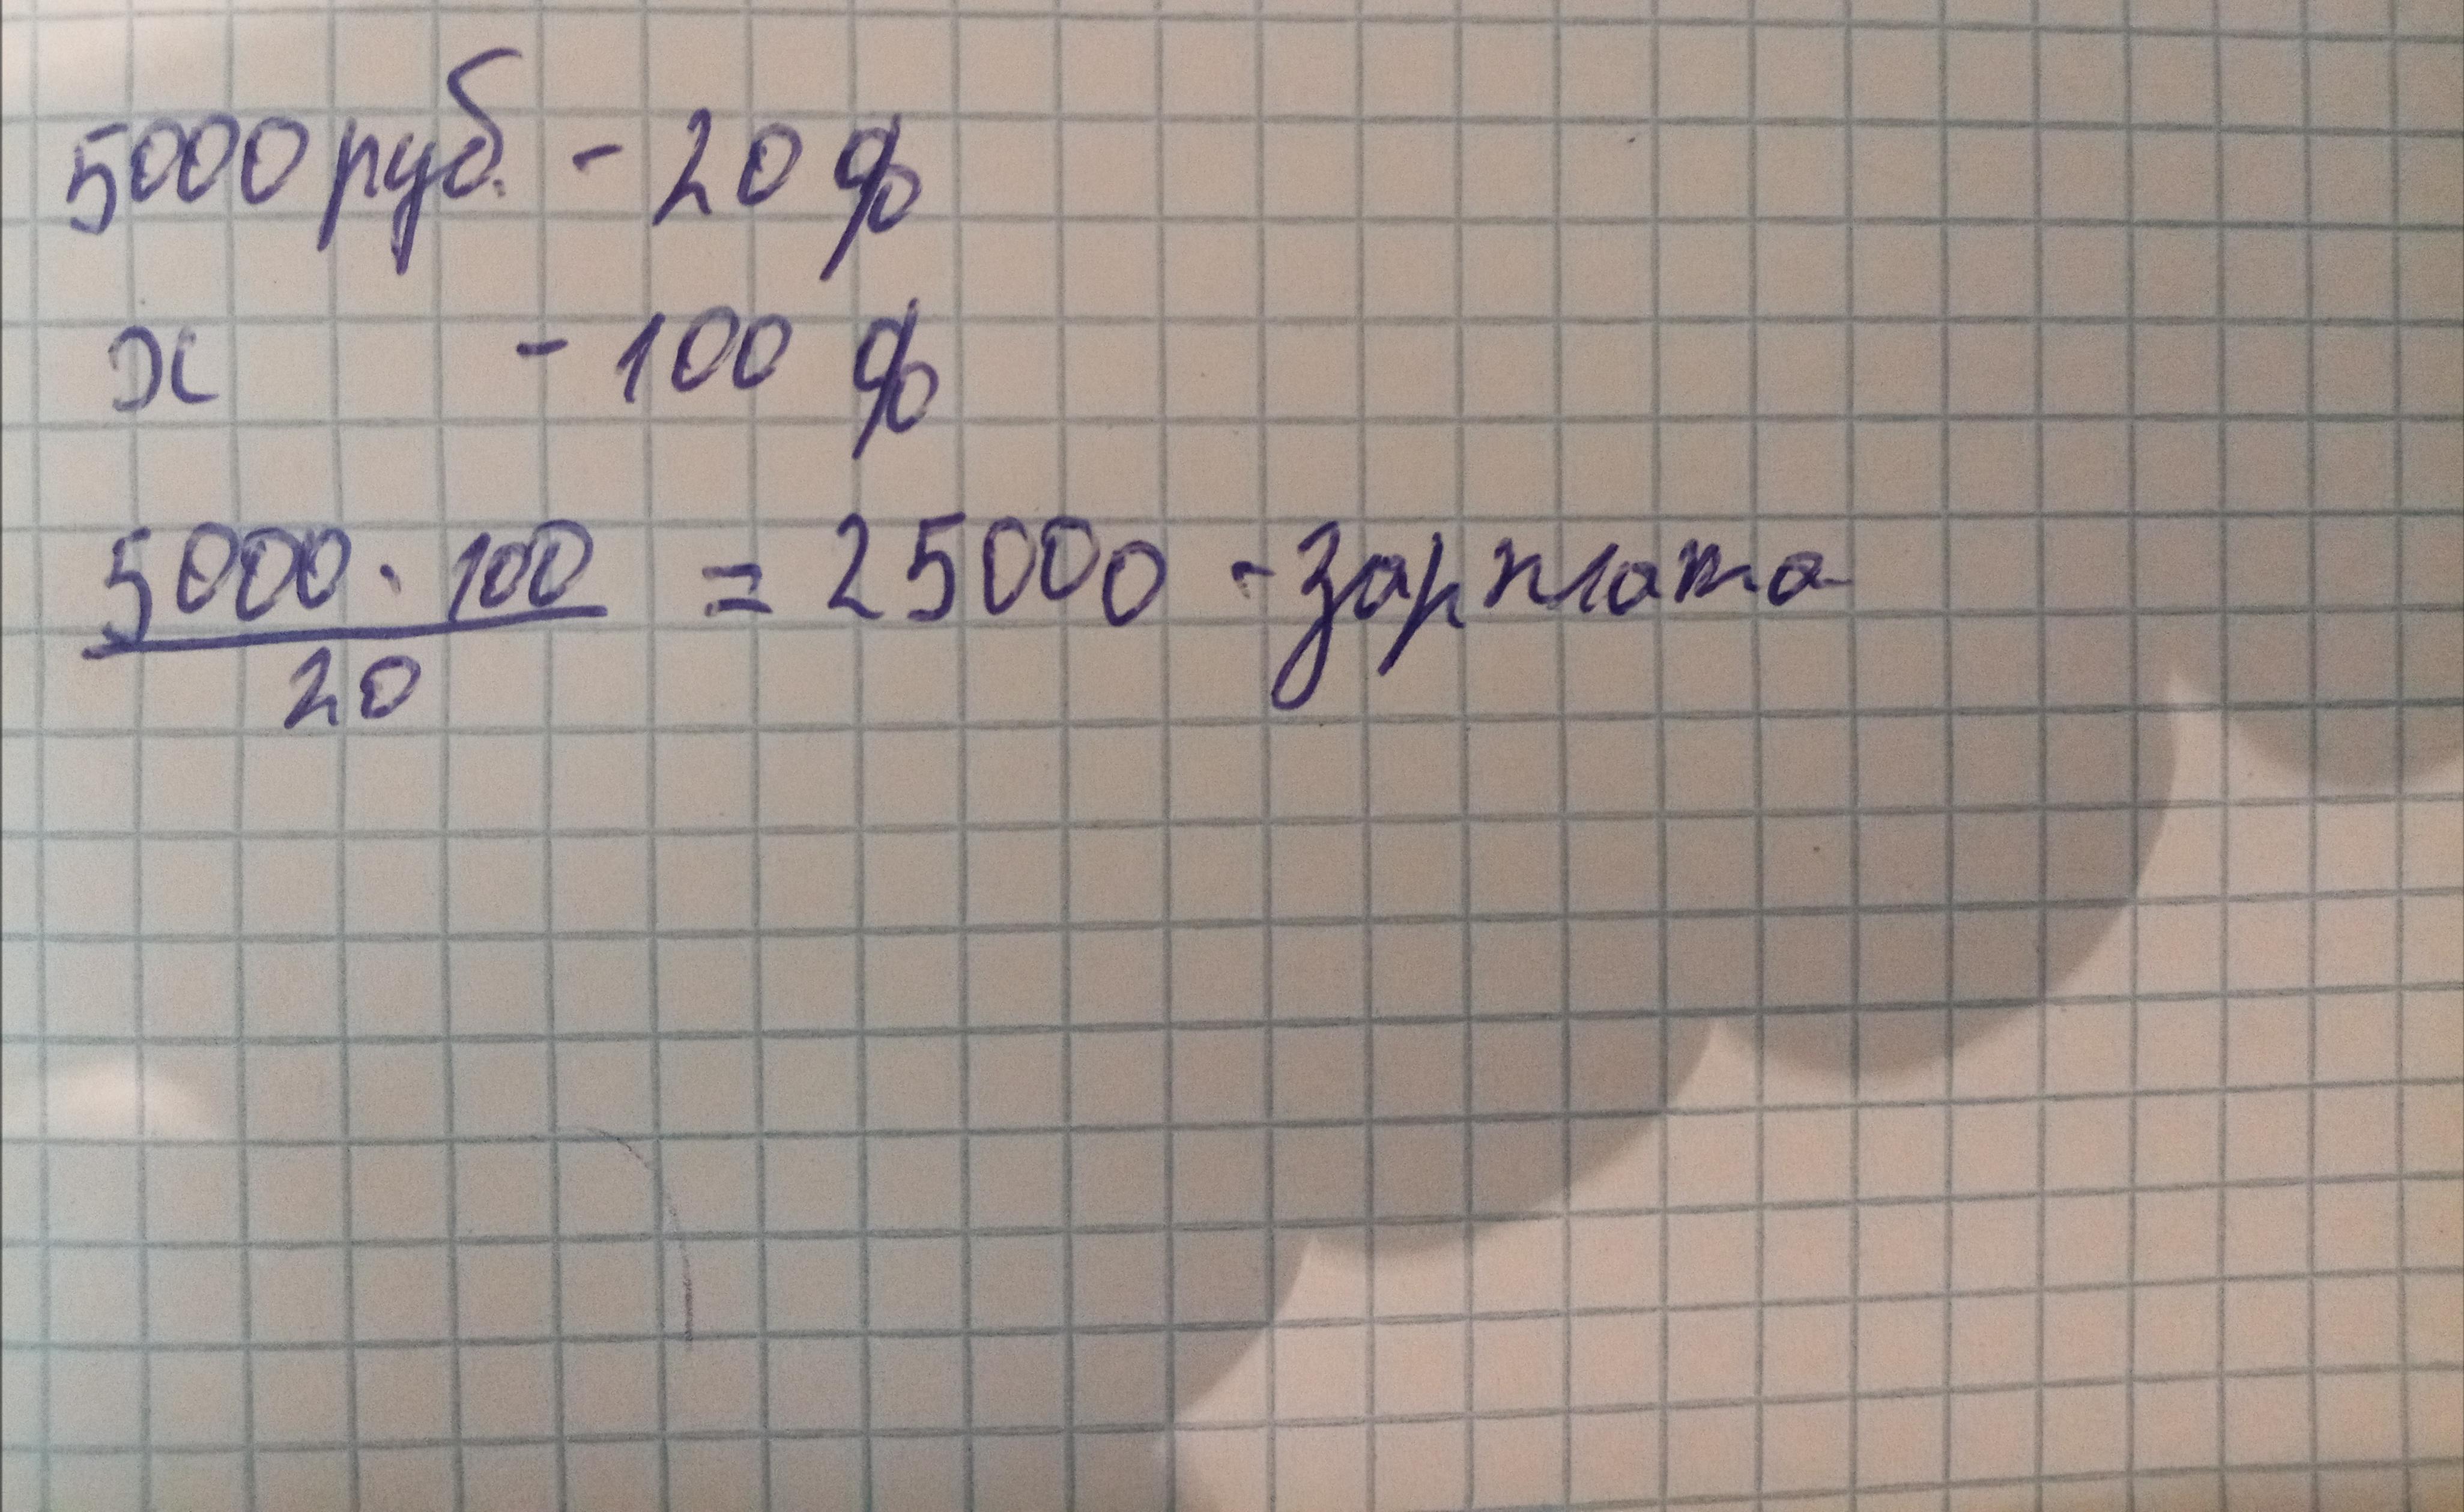 5000 руб. - 20 %
x - 100 %
5000 · 100 / 20 = 25000 - зарплата